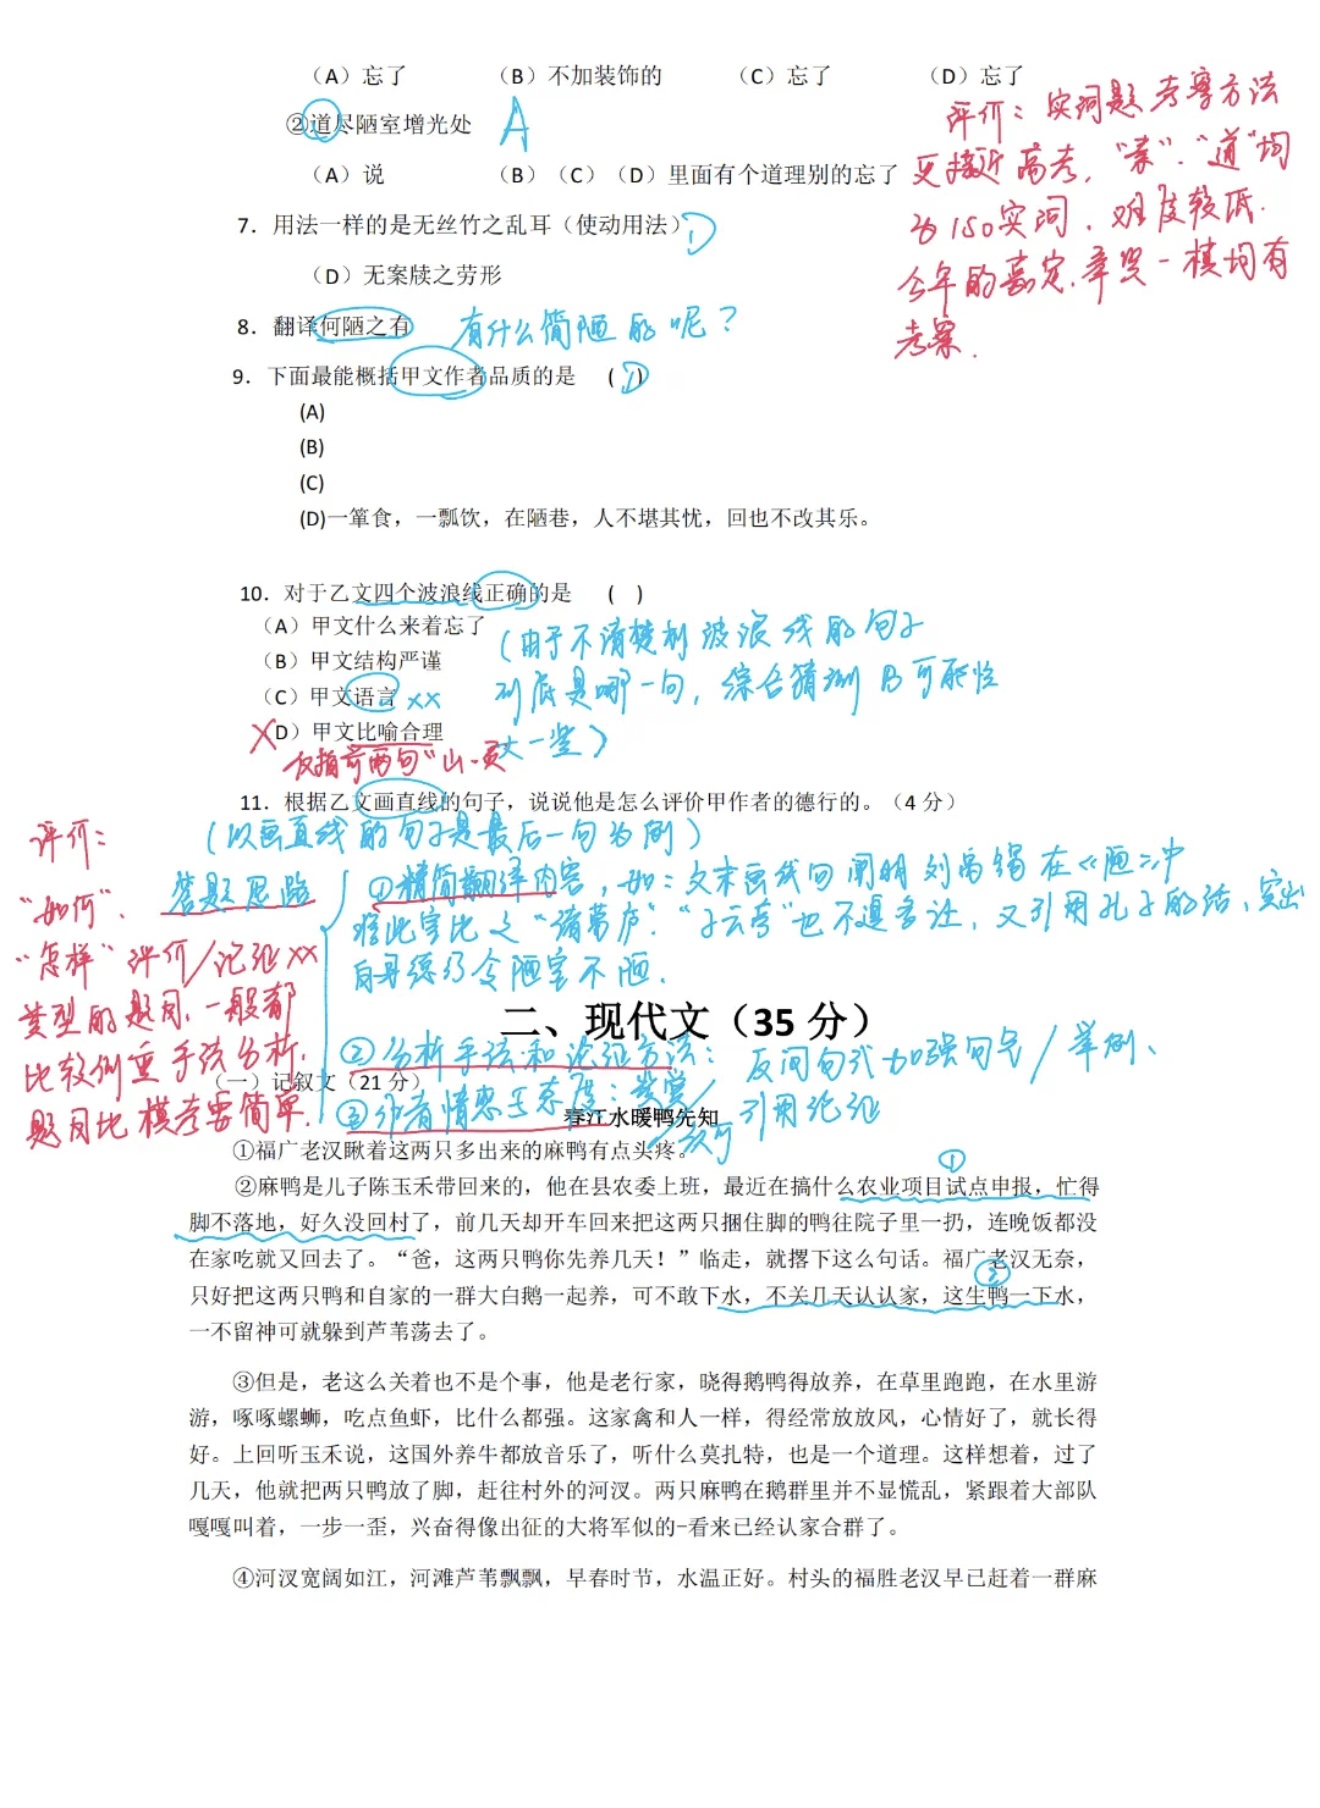 （A）忘了 （B）不加装饰的 （C）忘了 （D）忘了
②道尽陋室增光处 A
（A）说 （B）（C）（D）里面有个道理别的忘了
评价：实词题考察方法
更接近高考，“素”、“道”均
为150实词，难度较低.
今年的嘉定、奉贤一模均有
考察.
7. 用法一样的是无丝竹之乱耳（使动用法）D
（D）无案牍之劳形
8. 翻译何陋之有 有什么简陋的呢？
9. 下面最能概括甲文作者品质的是 （D）
(A)
(B)
(C)
(D)一箪食，一瓢饮，在陋巷，人不堪其忧，回也不改其乐。
10. 对于乙文四个波浪线正确的是 （ ）
（A）甲文什么来着忘了
（B）甲文结构严谨
（C）甲文语言 xx
X D）甲文比喻合理
（由于不清楚划波浪线的句子
到底是哪一句，综合猜测B可能性
大一些）
仅指前两句“山、灵
11. 根据乙文画直线的句子，说说他是怎么评价甲作者的德行的。（4 分）
（以画直线的句子是最后一句为例）
答题思路
①精简翻译内容，如：文末画线句阐明刘禹锡在《陋》中
将此室比之“诸葛庐”“子云亭”也不遑多让，又引用孔子的话、突出
自身德行令陋室不陋.
②分析手法和论证方法：反问句式加强句气/举例、
引用论证
③作者情思与态度：赞赏/
认可
评价：
“如何”、
“怎样”评价/论证xx
类型的题目、一般都
比较侧重手法分析.
题目比模考要简单.
二、现代文（35 分）
（一）记叙文（21 分）
春江水暖鸭先知
①福广老汉瞅着这两只多出来的麻鸭有点头疼。
①
②麻鸭是儿子陈玉禾带回来的，他在县农委上班，最近在搞什么农业项目试点申报，忙得
脚不落地，好久没回村了，前几天却开车回来把这两只捆住脚的鸭往院子里一扔，连晚饭都没
在家吃就又回去了。“爸，这两只鸭你先养几天！”临走，就撂下这么句话。福广老汉无奈，
②
只好把这两只鸭和自家的一群大白鹅一起养，可不敢下水，不关几天认认家，这生鸭一下水，
一不留神可就躲到芦苇荡去了。
③但是，老这么关着也不是个事，他是老行家，晓得鹅鸭得放养，在草里跑跑，在水里游
游，啄啄螺蛳，吃点鱼虾，比什么都强。这家禽和人一样，得经常放放风，心情好了，就长得
好。上回听玉禾说，这国外养牛都放音乐了，听什么莫扎特，也是一个道理。这样想着，过了
几天，他就把两只鸭放了脚，赶往村外的河汊。两只麻鸭在鹅群里并不显慌乱，紧跟着大部队
嘎嘎叫着，一步一歪，兴奋得像出征的大将军似的-看来已经认家合群了。
④河汊宽阔如江，河滩芦苇飘飘，早春时节，水温正好。村头的福胜老汉早已赶着一群麻